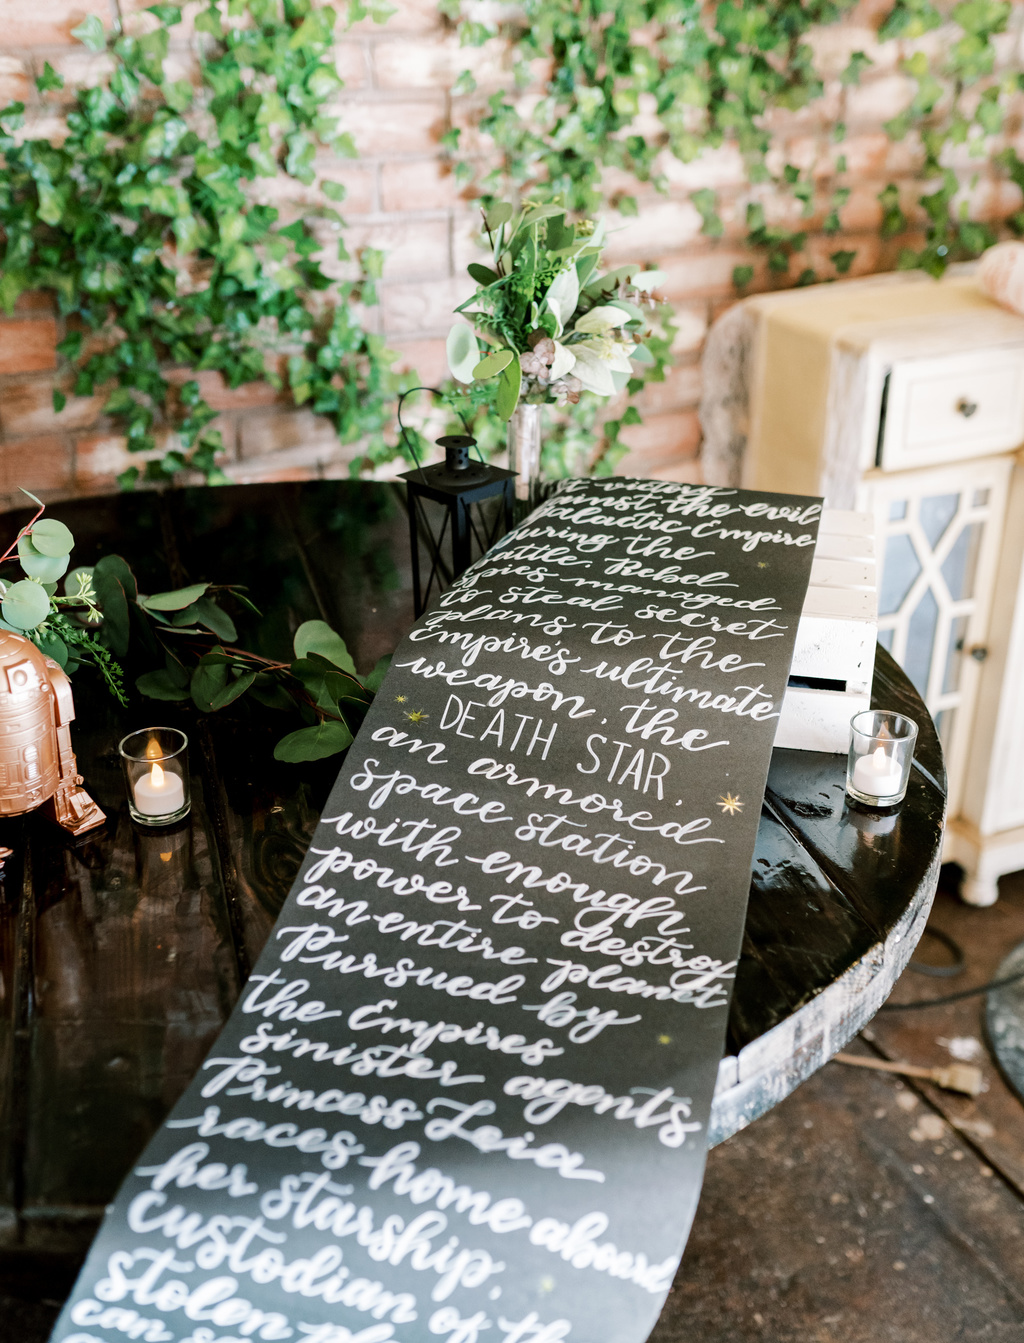 st victory
ainst the evil
Galactic Empire
During the
battle, Rebel
spies managed
to steal secret
plans to the
Empire's ultimate
weapon, the
DEATH STAR,
an armored
space station
with enough
power to destroy
an entire planet
Pursued by
the Empires
sinister agents,
Princess Leia
races home aboard
her starship,
Custodian of th
stolen pl
can sa